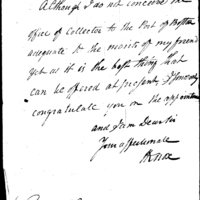 Although I do not conceive the
office of Collector to the Port of Boston
adequate to the merits of my friend
yet as it is the best thing that
can be offered at present I sincerely
congratulate you on the appointment
and I am Dear Sir
Your affectionate
H Knox